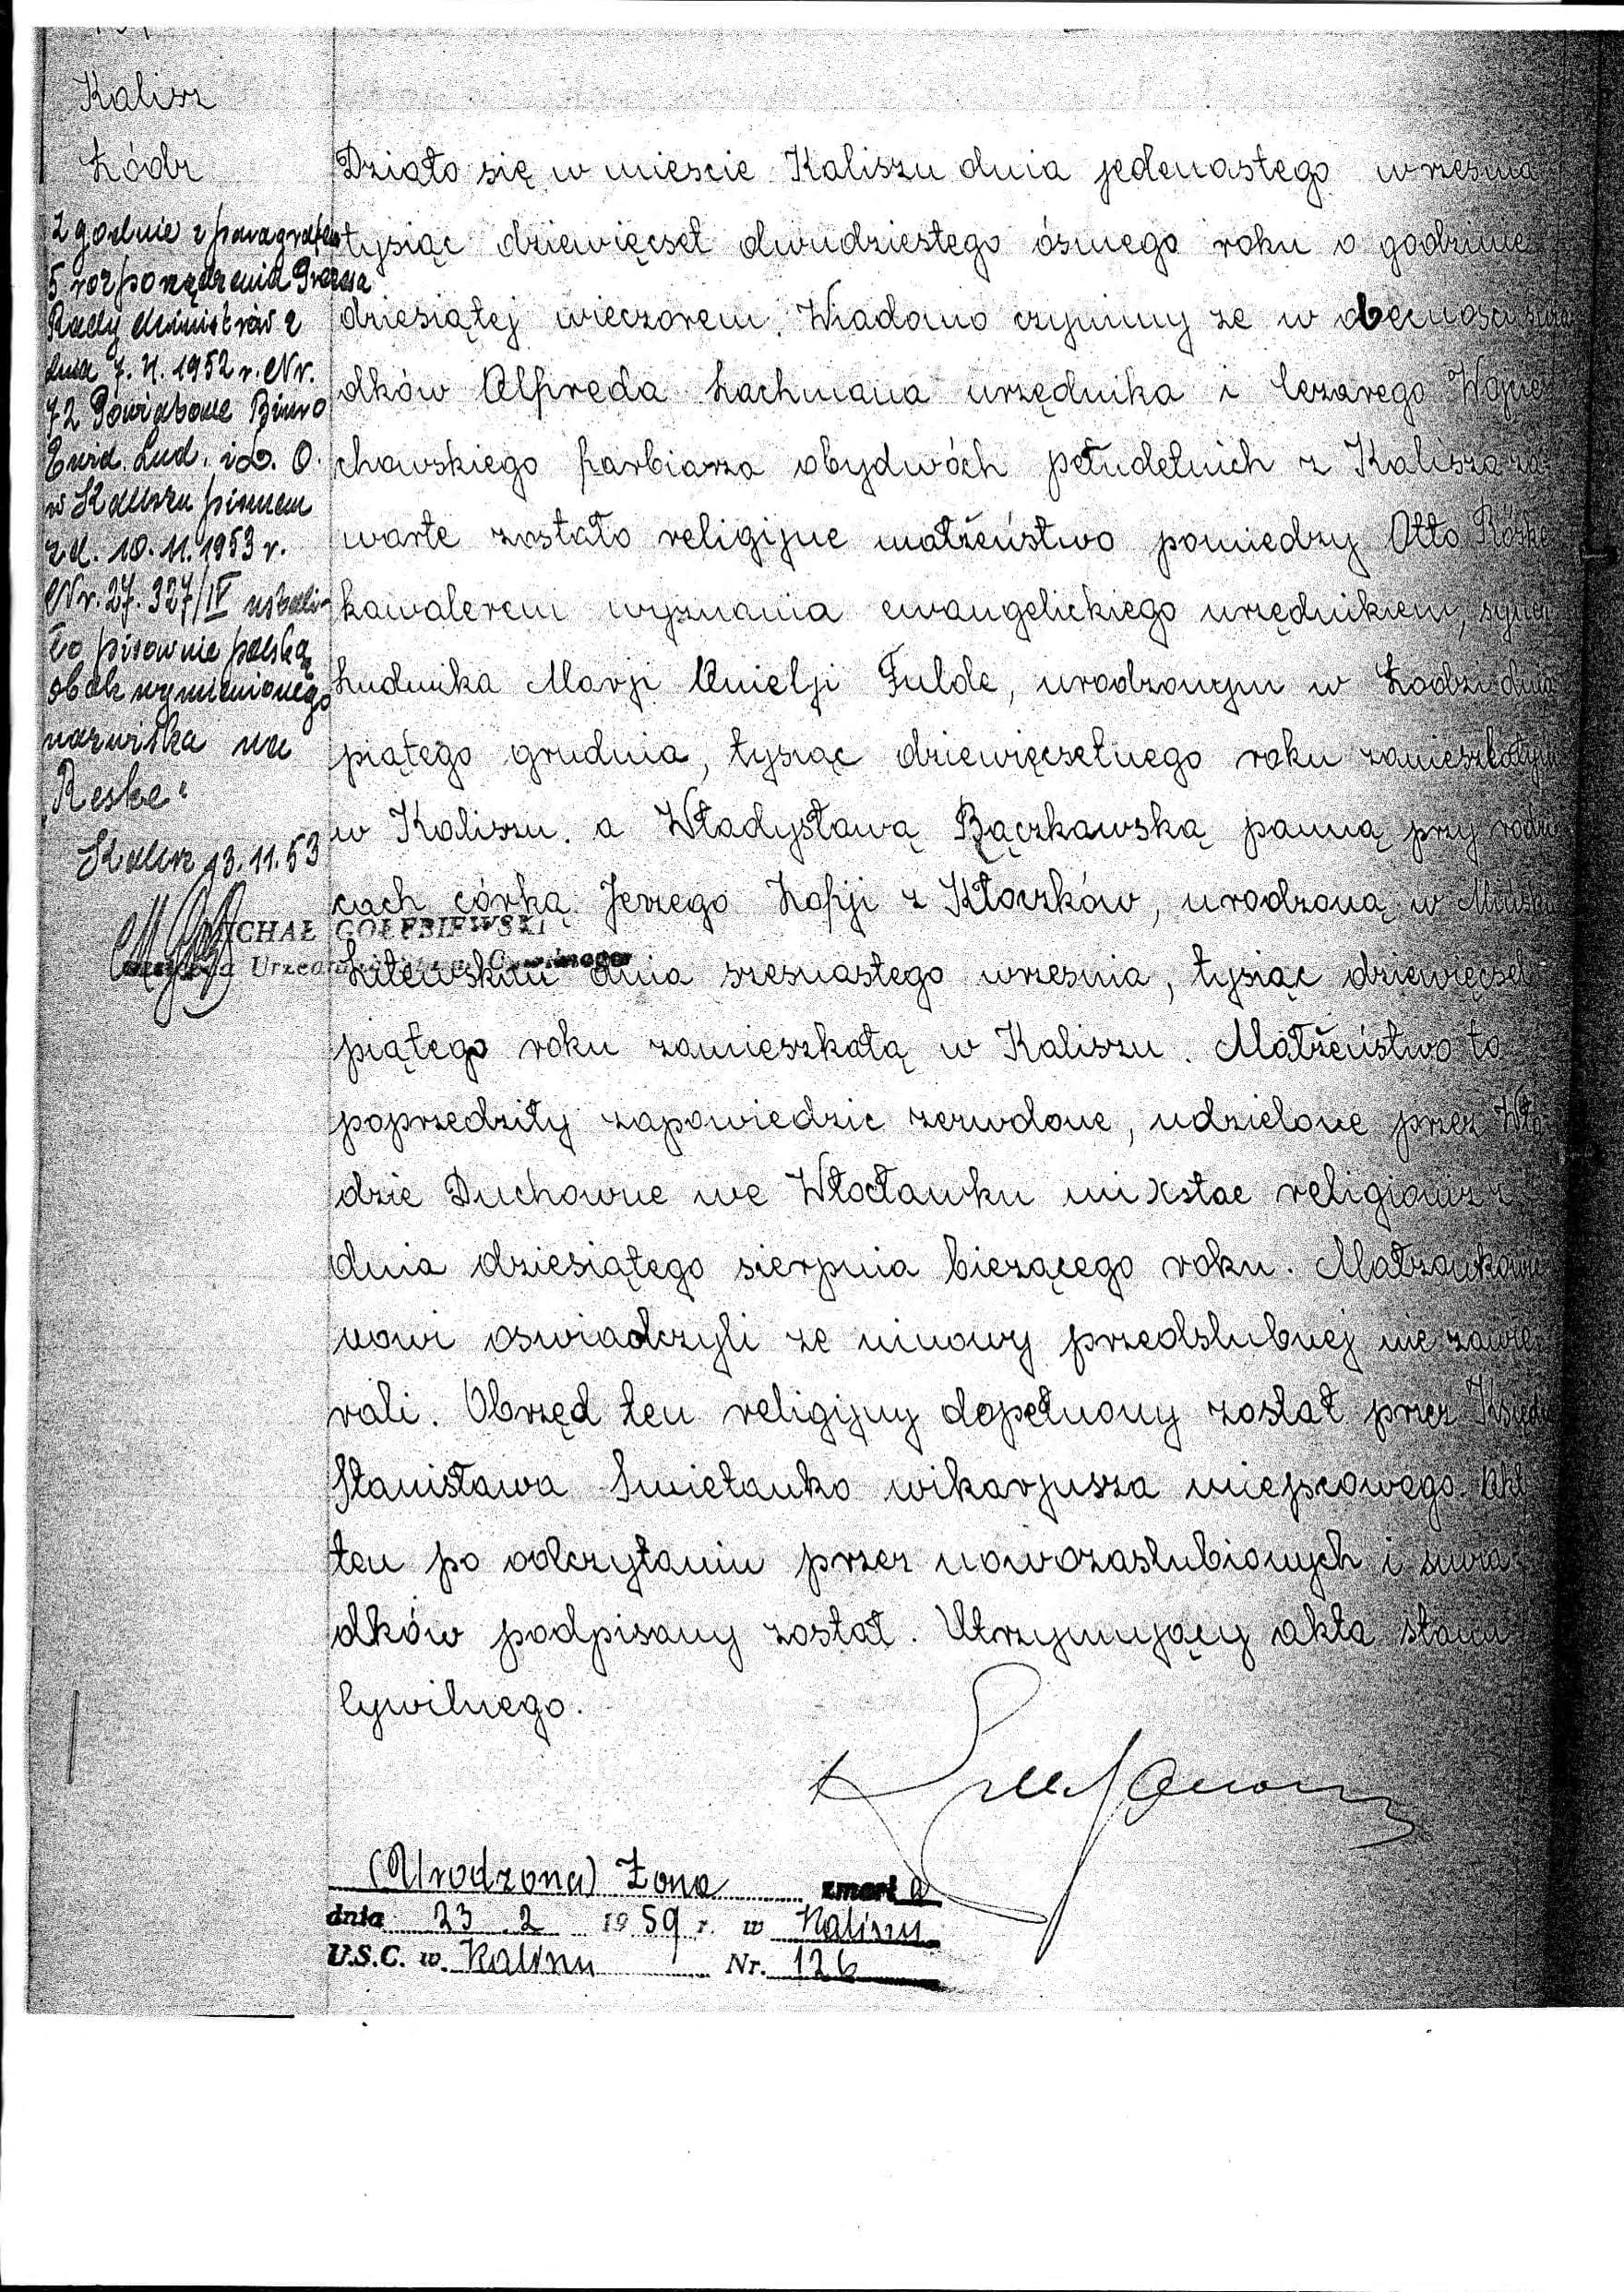 Kalisz
Łódz
Zgodnie z paragrafem
5 rozporządzenia Prezesa
Rady Ministrów z
dnia 7. II. 1952 r. Nr.
72 Powiatowe Biuro
Ewid. Lud. i D. O.
w Kaliszu pismem
z d. 10. 11. 1953 r.
Nr. 27. 327/IV ustali-
ło pisownie polską
obok wymienionego
nazwiska na
"Reske"
Kalisz 13.11.53
MICHAŁ GOŁĘBIEWSKI
Urzędu Cywilnego
Działo się w miescie Kaliszu dnia jedenastego wrzesnia
tysiąc dziewięcset dwudziestego ósmego roku o godzinie
dziesiątej wieczorem. Wiadomo czynimy ze w obecnosci swia
dków Alfreda Lachmana urzędnika i Cezarego Wojcie
chowskiego farbiarza obydwóch pełudetnich z Kalisza za
warte zostało religijne małżeństwo pomiedzy Otto Röske
kawalerem wyznania ewangelickiego urzędnikiem, synem
Ludwika Marji Anielji Fulde, urodzonym w Łodzi dnia
piątego grudnia, tysiąc dziewięcsetnego roku zamieszkałym
w Kaliszu. a Władysławą Bączkawską panną przy rodzi
cach córką Jerzego Zofji z Kłoczków, urodzoną w Minsku
Litewskim dnia szesnastego wrzesnia, tysiąc dziewięcset
piątego roku zamieszkałą w Kaliszu. Małżeństwo to
poprzedziły zapowiedzie zezwolone, udzielone przez Wła
dzie Duchowne we Włocławku mixstae religionis z
dnia dziesiątego sierpnia biezącego roku. Małzonkowie
nowi oswiadczyli ze umowy przedslubnej nie zawie
rali. Obrzęd ten religijny dopełnony został przez Księdza
Stanisława Smietanko wikarjusza miejscowego. Akt
ten po odczytaniu przez nowozaslubionych i swia
dków podpisany został. Utrzymujący akta stanu
Cywilnego.
(Urodzona) Żona zmarła
dnia 23. 2 1959 r. w Kaliszu
U.S.C. w Kaliszu Nr. 126